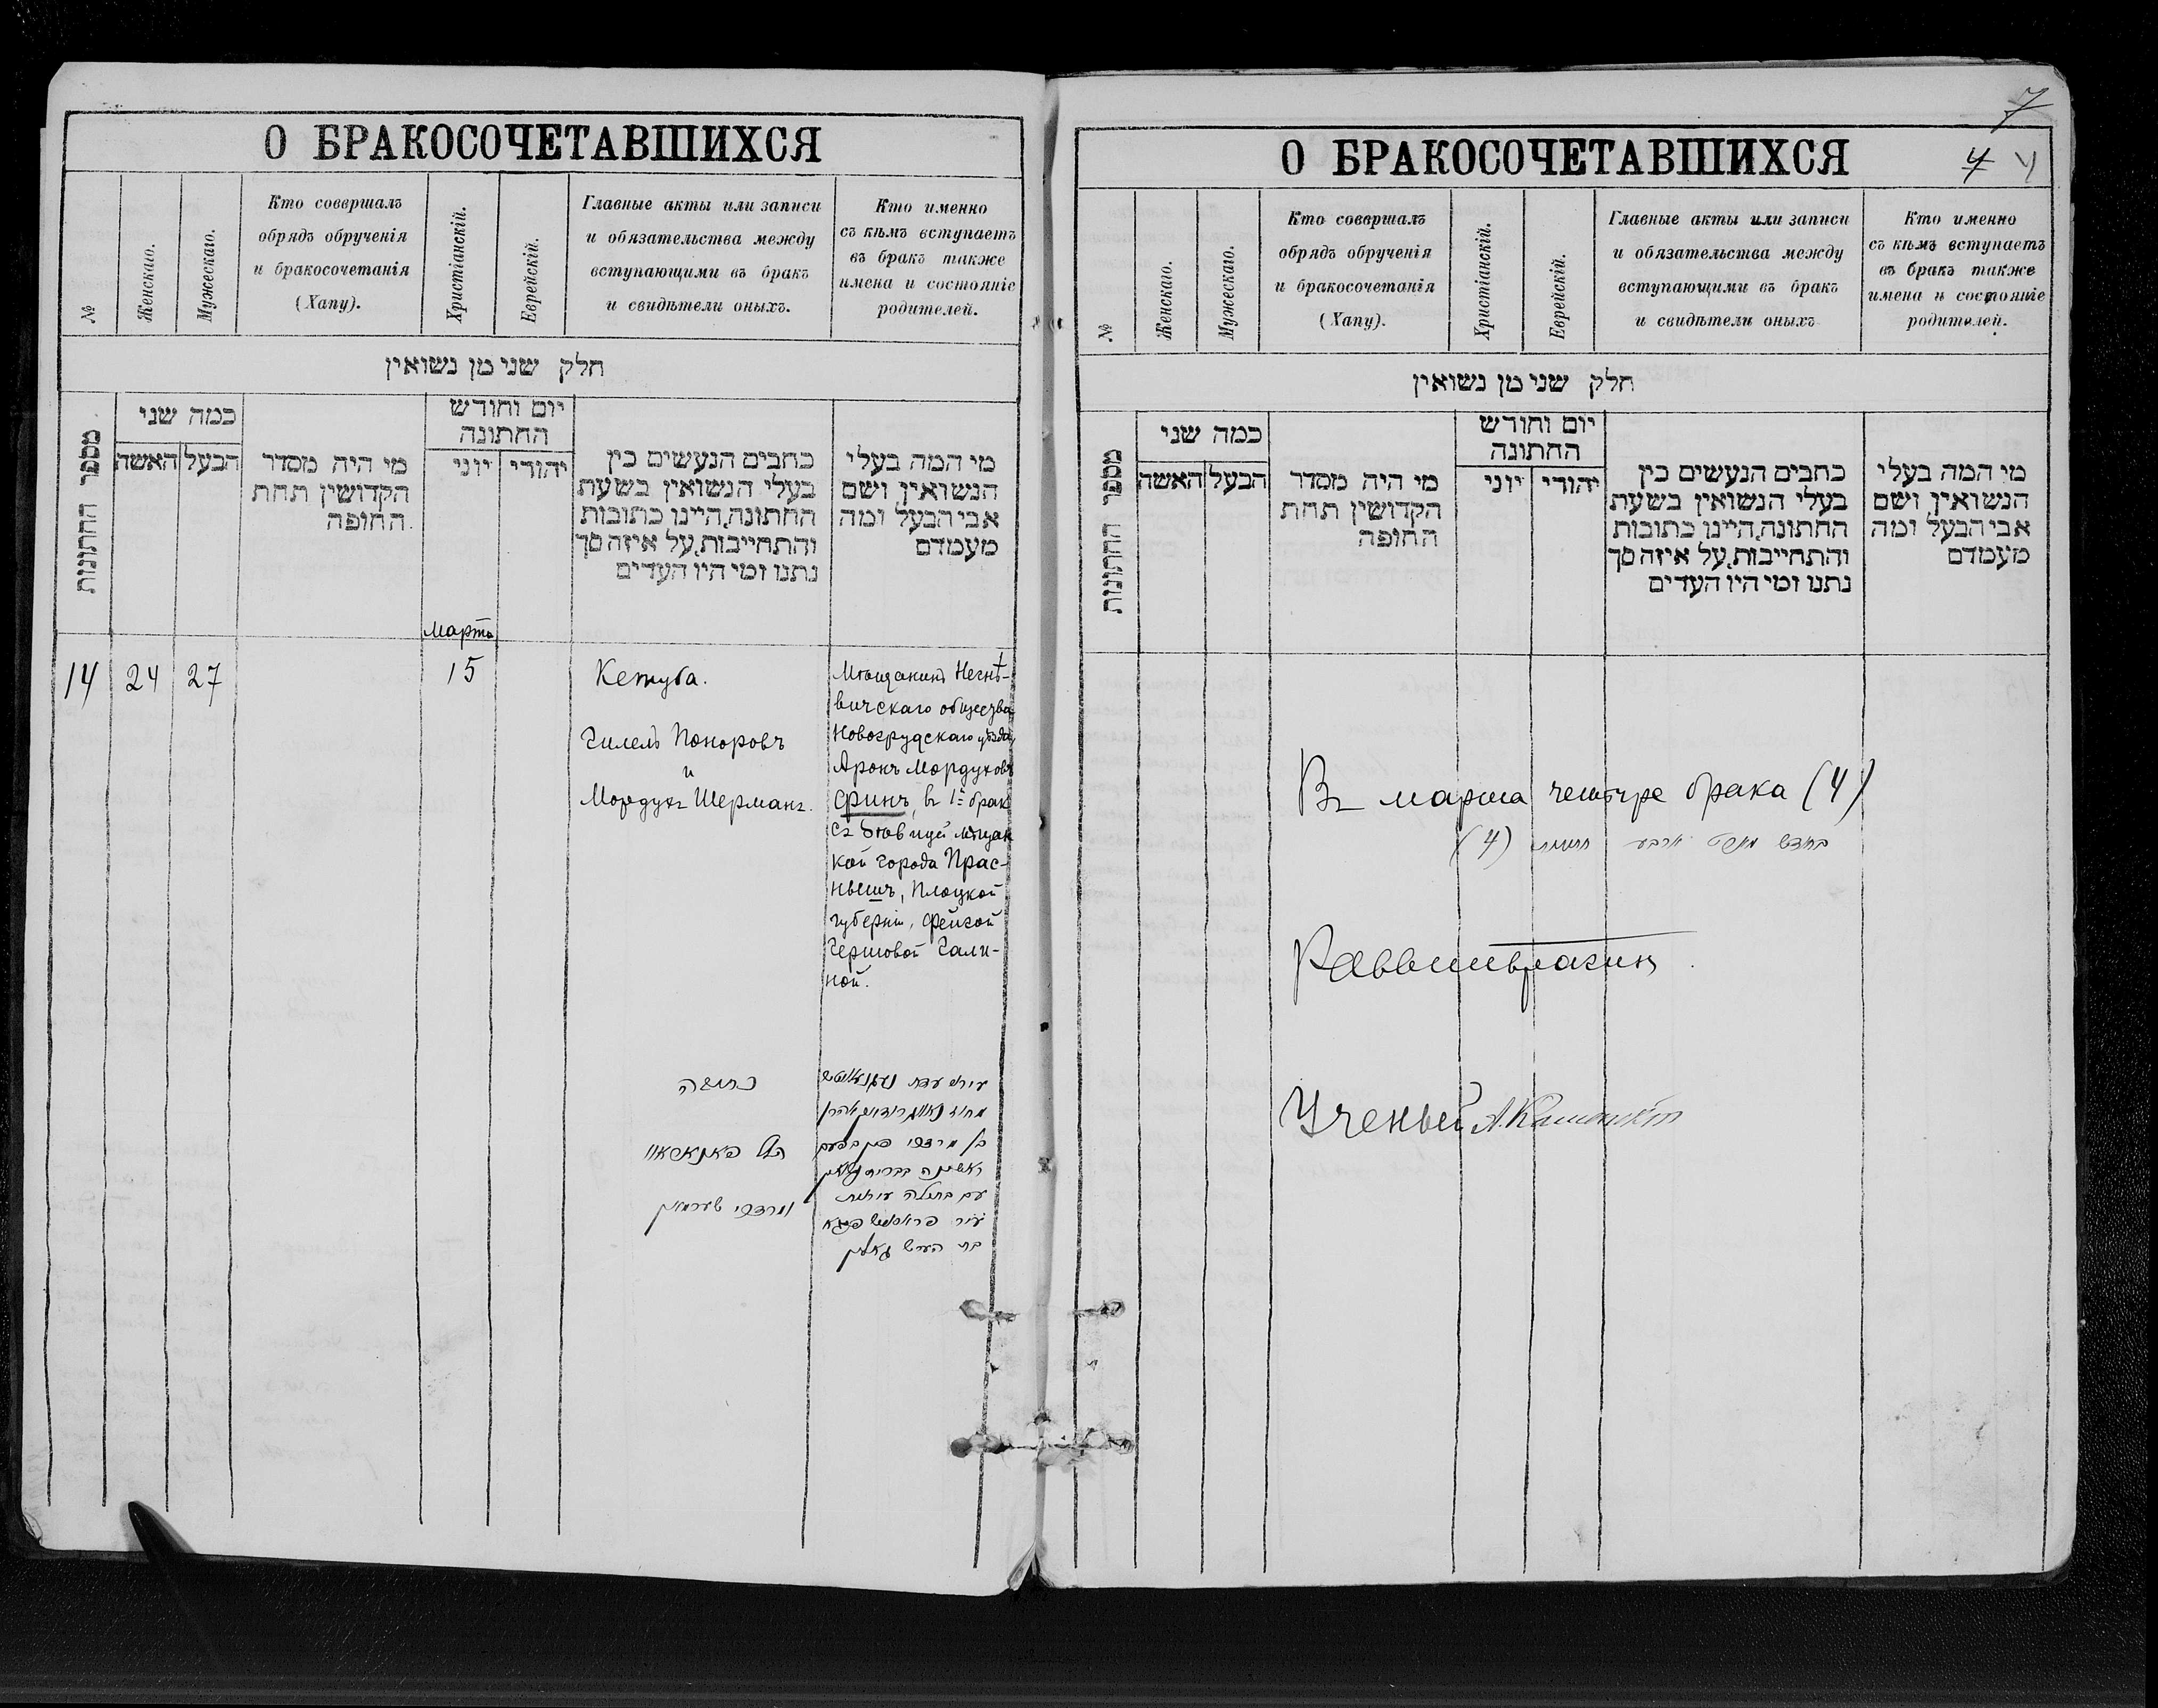 О БРАКОСОЧЕТАВШИХСЯ
№
Женскаго.
Мужескаго.
Кто совершалъ
обрядъ обрученія
и бракосочетанія
(Хапу).
Христіанскій.
Еврейскій.
Главные акты или записи
и обязательства между
вступающими въ бракъ
и свидѣтели оныхъ.
Кто именно
съ кѣмъ вступаетъ
въ бракъ также
имена и состояніе
родителей.
חלק שני מן נשואין
מספר החתונות
כמה שני
האשה
הבעל
מי היה מסדר
הקדושין תחת
החופה.
יום וחודש
החתונה
יוני
יהודי
כתבים הנעשים בין
בעלי הנשואין בשעת
החתונה,היינו כתובות
והתחייבות,על איזה סך
נתנו ומי היו העדים
מי המה בעלי
הנשואין, ושם
אבי הבעל ומה
מעמדם
Марта
14
24
27
15
Кетуба.
Гилель Поноровъ
и
Мордухъ Шерманъ.
Мѣщанинъ Негнѣ-
вичскаго общества
Новогрудскаго уѣзда,
Аронъ Мордуховъ
Финъ, въ 1-й бракъ
съ дѣвицей мѣщан
кой города Прас-
нышъ, Плоцкой
губерніи, Фейгой
Гершовой Гали-
ной.
כתובה
הלל
ומרדכי שערמאן
בן מרדכי פין בפעם
עם בתולה עירנית
עיר
בת הערש גאלין
7
4 4
О БРАКОСОЧЕТАВШИХСЯ
№
Женскаго.
Мужескаго.
Кто совершалъ
обрядъ обрученія
и бракосочетанія
(Хапу).
Христіанскій.
Еврейскій.
Главные акты или записи
и обязательства между
вступающими въ бракъ
и свидѣтели оныхъ.
Кто именно
съ кѣмъ вступаетъ
въ бракъ также
имена и состояніе
родителей.
חלק שני מן נשואין
מספר החתונות
כמה שני
האשה
הבעל
מי היה מסדר
הקדושין תחת
החופה
יום וחודש
החתונה
יוני
יהודי
כתבים הנעשים בין
בעלי הנשואין בשעת
החתונה,היינו כתובות
והתחייבות,על איזה סך
נתנו ומי היו העדים
מי המה בעלי
הנשואין, ושם
אבי הבעל ומה
מעמדם
Въ марта четыре брака (4)
בחודש מארט ארבע חתונות (4)
Раввинъ
Ученый А.